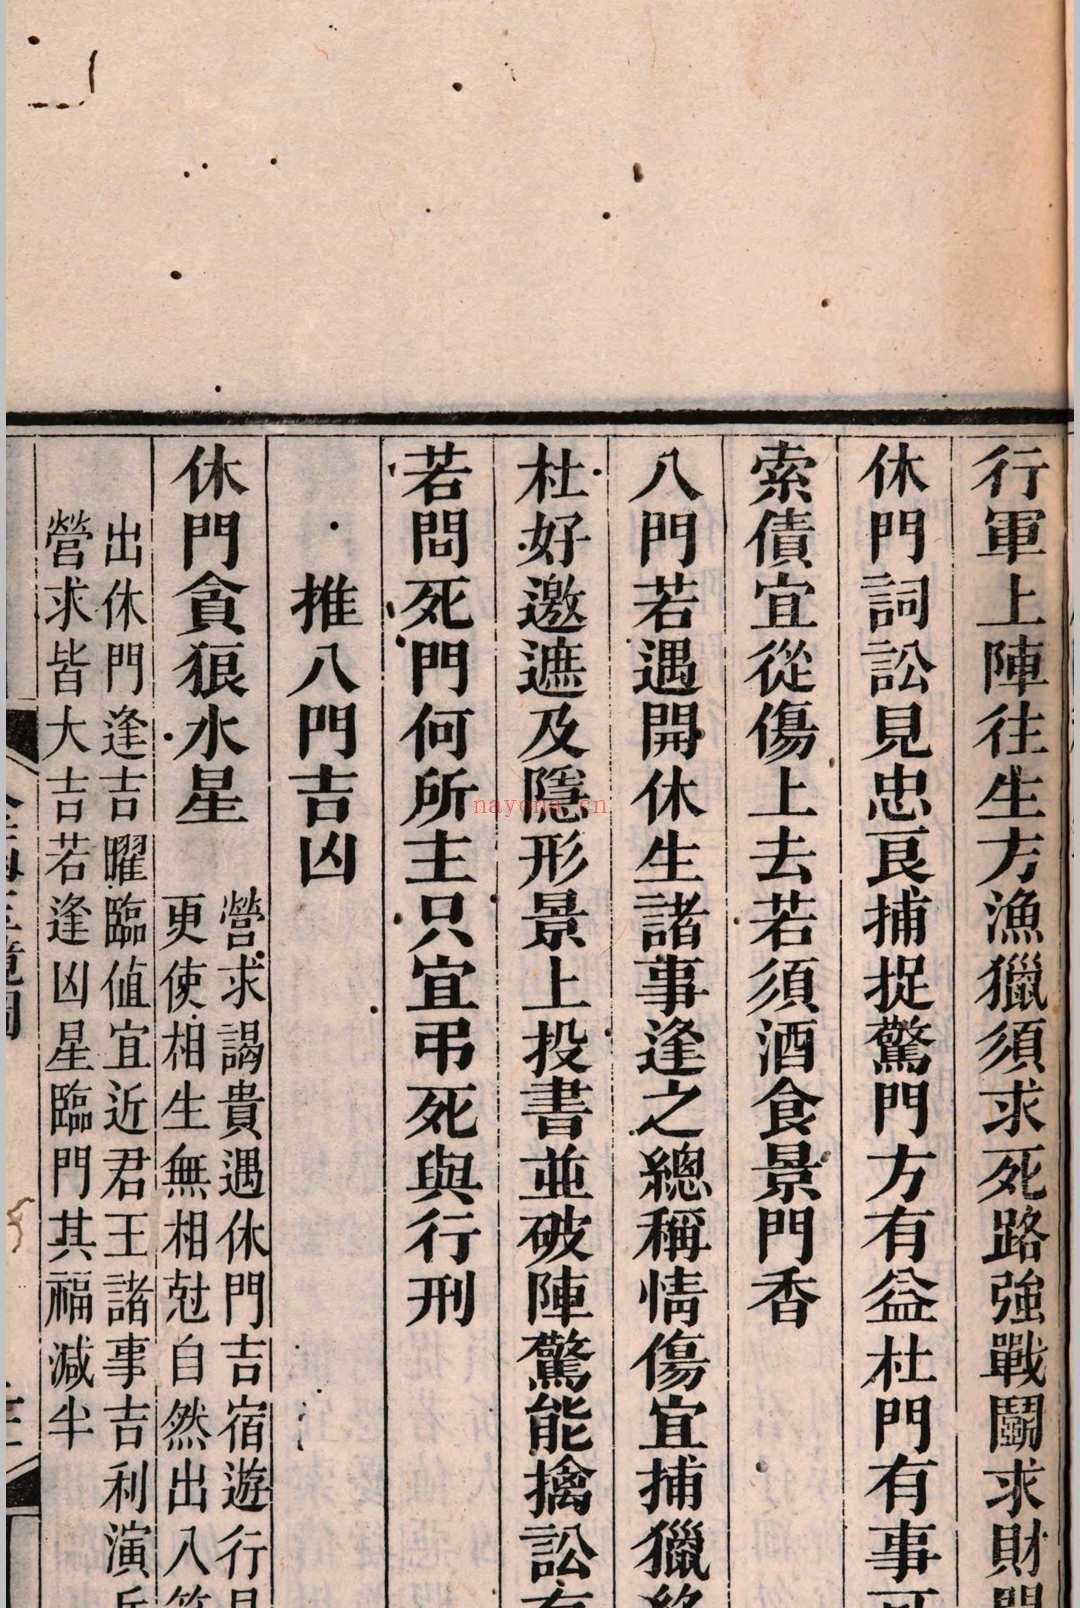 行軍上陣往生方漁獵須求死路強戰鬭求財
休門詞訟見忠良捕捉驚門方有益杜門有事
索債宜從傷上去若須酒食景門香
八門若遇開休生諸事逢之總稱情傷宜捕獵
杜好邀遮及隱形景上投書並破陣驚能擒訟有
若問死門何所主只宜弔死與行刑
推八門吉凶
休門貪狼水星
營求謁貴遇休門吉宿遊行
更使相生無相尅自然出入
出休門逢吉曜臨値宜近君王諸事吉利演兵
營求皆大吉若逢凶星臨門其福減半
nayona.cn